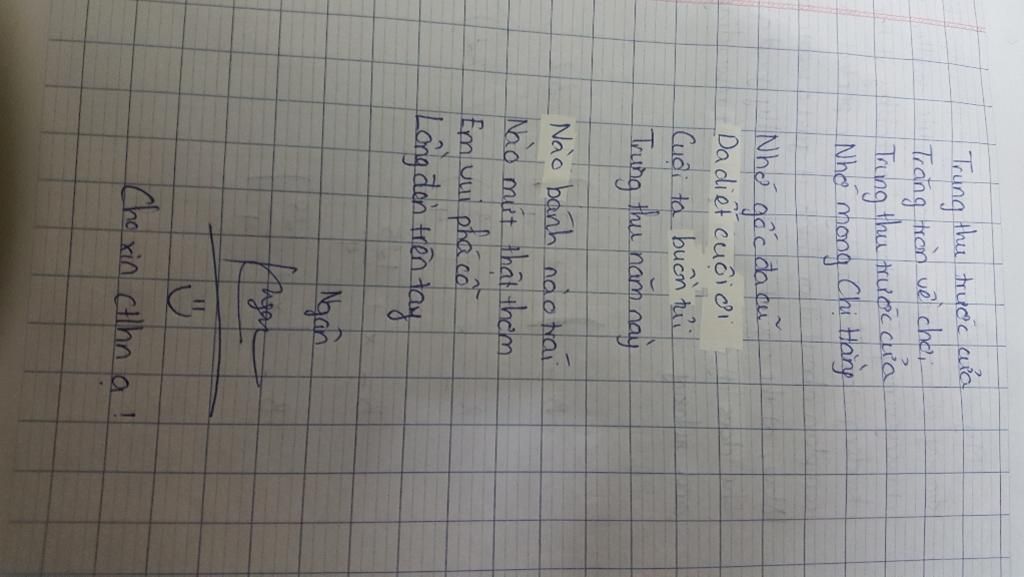 Trung thu trước cửa
Trăng tròn về chơi
Trung thu trước cửa
Nhớ mong Chị Hằng
Nhớ gốc đa cũ
Da diết cuội ơi
Cuội ta buồn tủi
Trung thu năm nay
Nào bánh nào trái
Nào mứt thật thơm
Em vui phá cỗ
Lồng đèn trên tay
Ngân
Cho xin ctlhn ạ!